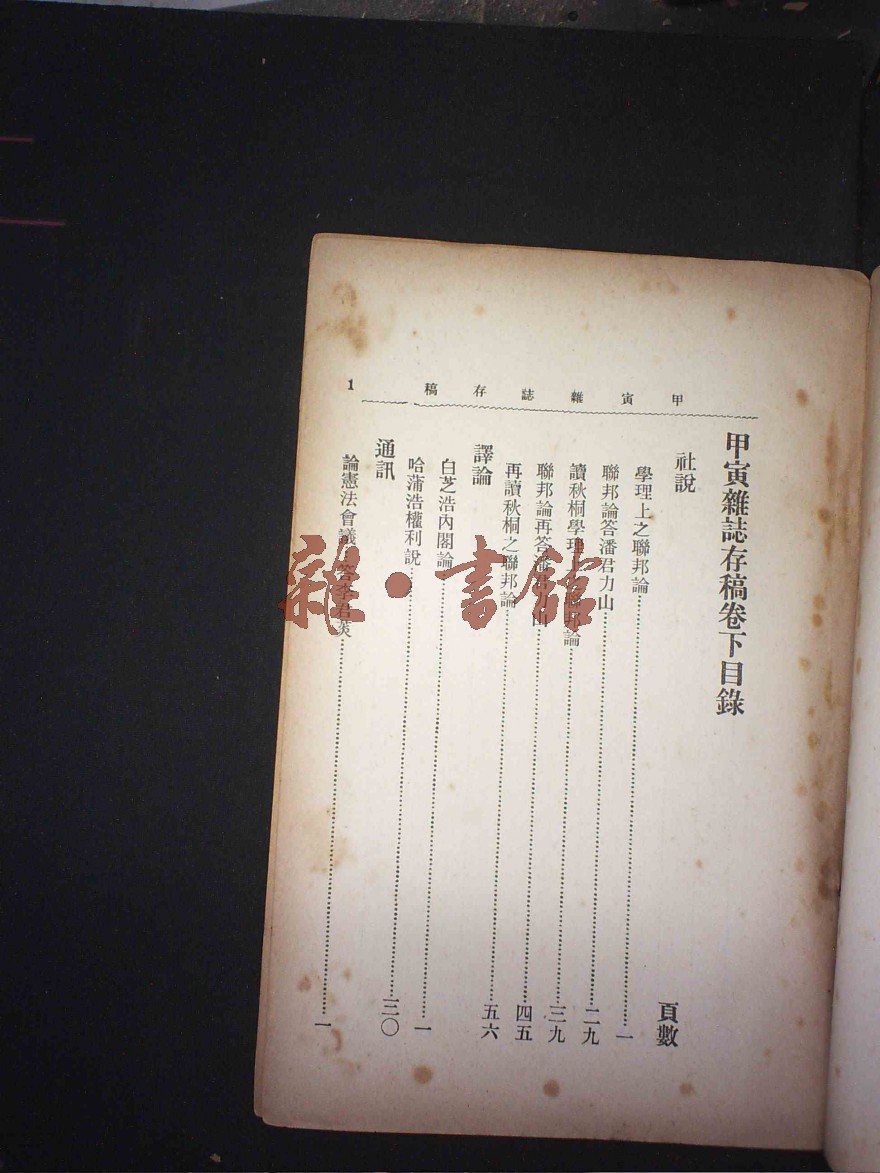 甲寅雜誌存稿
1
甲寅雜誌存稿卷下目錄
頁數
社說
學理上之聯邦論……一
聯邦論答潘君力山……二九
讀秋桐學理上之聯邦論……三九
聯邦論再答潘君力山……四五
再讀秋桐之聯邦論……五六
譯論
白芝浩內閣論……一
哈蒲浩權利說……三〇
通訊
論憲法會議 答李君……一
雜·書館